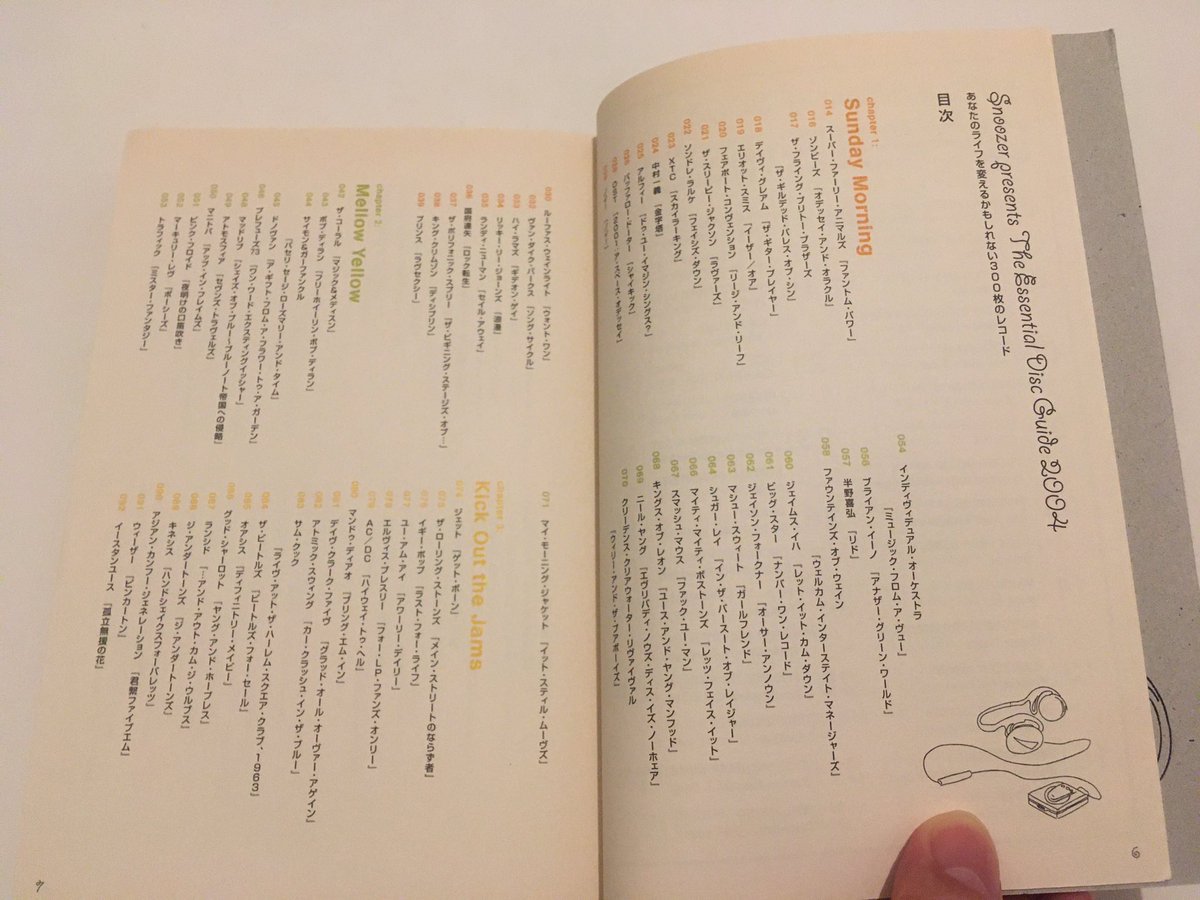 Snoozer presents The Essential Disc Guide 2004
あなたのライフを変えるかもしれない300枚のレコード
目次
chapter 1:
Sunday Morning
014 スーパー・ファーリー・アニマルズ 『ファントム・パワー』
016 ゾンビーズ 『オデッセイ・アンド・オラクル』
017 ザ・フライング・ブリトー・ブラザーズ
『ザ・ギルデッド・パレス・オブ・シン』
018 デイヴィ・グレアム 『ザ・ギター・プレイヤー』
019 エリオット・スミス 『イーザー/オア』
020 フェアポート・コンヴェンション 『リージ・アンド・リーフ』
021 ザ・スリーピー・ジャクソン 『ラヴァーズ』
022 ソンドレ・ラルケ 『フェイシズ・ダウン』
023 XTC 『スカイラーキング』
024 中村一義 『金字塔』
025 アルフィー 『ドゥ・ユー・イマジン・シングス?』
026 バッファロー・ドーター 『シャイキック』
『2001・ア・スペース・オデッセイ』
030 ルーファス・ウェインライト 『ウォント・ワン』
032 ヴァン・ダイク・パークス 『ソング・サイクル』
033 ハイ・ラマズ 『ギデオン・ゲイ』
034 リッキー・リー・ジョーンズ 『浪漫』
035 ランディ・ニューマン 『セイル・アウェイ』
036 國府達矢 『ロック転生』
037 ザ・ポリフォニック・スプリー 『ザ・ビギニング・ステージズ・オブ…』
038 キング・クリムゾン 『ディシプリン』
039 プリンス 『ラヴセクシー』
chapter 2:
Mellow Yellow
042 ザ・コーラル 『マジック&メディスン』
043 ボブ・ディラン 『フリーホイーリン・ボブ・ディラン』
044 サイモン&ガーファンクル
『パセリ・セージ・ローズマリー・アンド・タイム』
045 ドノヴァン 『ア・ギフト・フロム・ア・フラワー・トゥ・ア・ガーデン』
046 プレフューズ73 『ワン・ワード・エクスティングイッシャー』
048 マッドリブ 『シェイズ・オブ・ブルー〜ブルーノート帝国への侵略』
049 アトモスフィア 『セヴンズ・トラヴェルズ』
050 マニトバ 『アップ・イン・フレイムズ』
051 ピンク・フロイド 『夜明けの口笛吹き』
052 マーキュリー・レヴ 『ボーシーズ』
053 トラフィック 『ミスター・ファンタジー』
054 インディヴィデュアル・オーケストラ
『ミュージック・フロム・ア・ヴュー』
056 ブライアン・イーノ 『アナザー・グリーン・ワールド』
057 半野喜弘 『リド』
058 ファウンテインズ・オブ・ウェイン
『ウェルカム・インターステイト・マネージャーズ』
060 ジェイムス・イハ 『レット・イット・カム・ダウン』
061 ビッグ・スター 『ナンバー・ワン・レコード』
062 ジェイソン・フォークナー 『オーサー・アンノウン』
063 マシュー・スウィート 『ガールフレンド』
064 シュガー・レイ 『イン・ザ・パースート・オブ・レイジャー』
066 マイティ・マイティ・ボストーンズ 『レッツ・フェイス・イット』
067 スマッシュ・マウス 『ファック・ユー・マン』
068 キングス・オブ・レオン 『ユース・アンド・ヤング・マンフッド』
069 ニール・ヤング 『エヴリバディ・ノウズ・ディス・イズ・ノーホェア』
070 クリーデンス・クリアウォーター・リヴァイヴァル
『ウィリー・アンド・ザ・プアボーイズ』
071 マイ・モーニング・ジャケット 『イット・スティル・ムーヴズ』
chapter 3:
Kick Out the Jams
074 ジェット 『ゲット・ボーン』
075 ザ・ローリング・ストーンズ 『メイン・ストリートのならず者』
076 イギー・ポップ 『ラスト・フォー・ライフ』
077 ユー・アム・アイ 『アワーリー・デイリー』
078 エルヴィス・プレスリー 『フォー・LP・ファンズ・オンリー』
079 AC/DC 『ハイウェイ・トゥ・ヘル』
080 マンドゥ・ディアオ 『ブリング・エム・イン』
081 デイヴ・クラーク・ファイヴ 『グラッド・オール・オーヴァー・アゲイン』
082 アトミック・スウィング 『カー・クラッシュ・イン・ザ・ブルー』
083 サム・クック
『ライヴ・アット・ザ・ハーレム・スクエア・クラブ、1963』
084 ザ・ビートルズ 『ビートルズ・フォー・セール』
085 オアシス 『ディフィニトリー・メイビー』
086 グッド・シャーロット 『ヤング・アンド・ホープレス』
087 ランシド 『…アンド・アウト・カム・ジ・ウルブス』
088 ジ・アンダートーンズ 『ジ・アンダートーンズ』
089 キネシス 『ハンドシェイクスフォーバレッツ』
090 アジアン・カンフー・ジェネレーション 『君繋ファイブエム』
091 ウィーザー 『ピンカートン』
092 イースタンユース 『孤立無援の花』
6
7